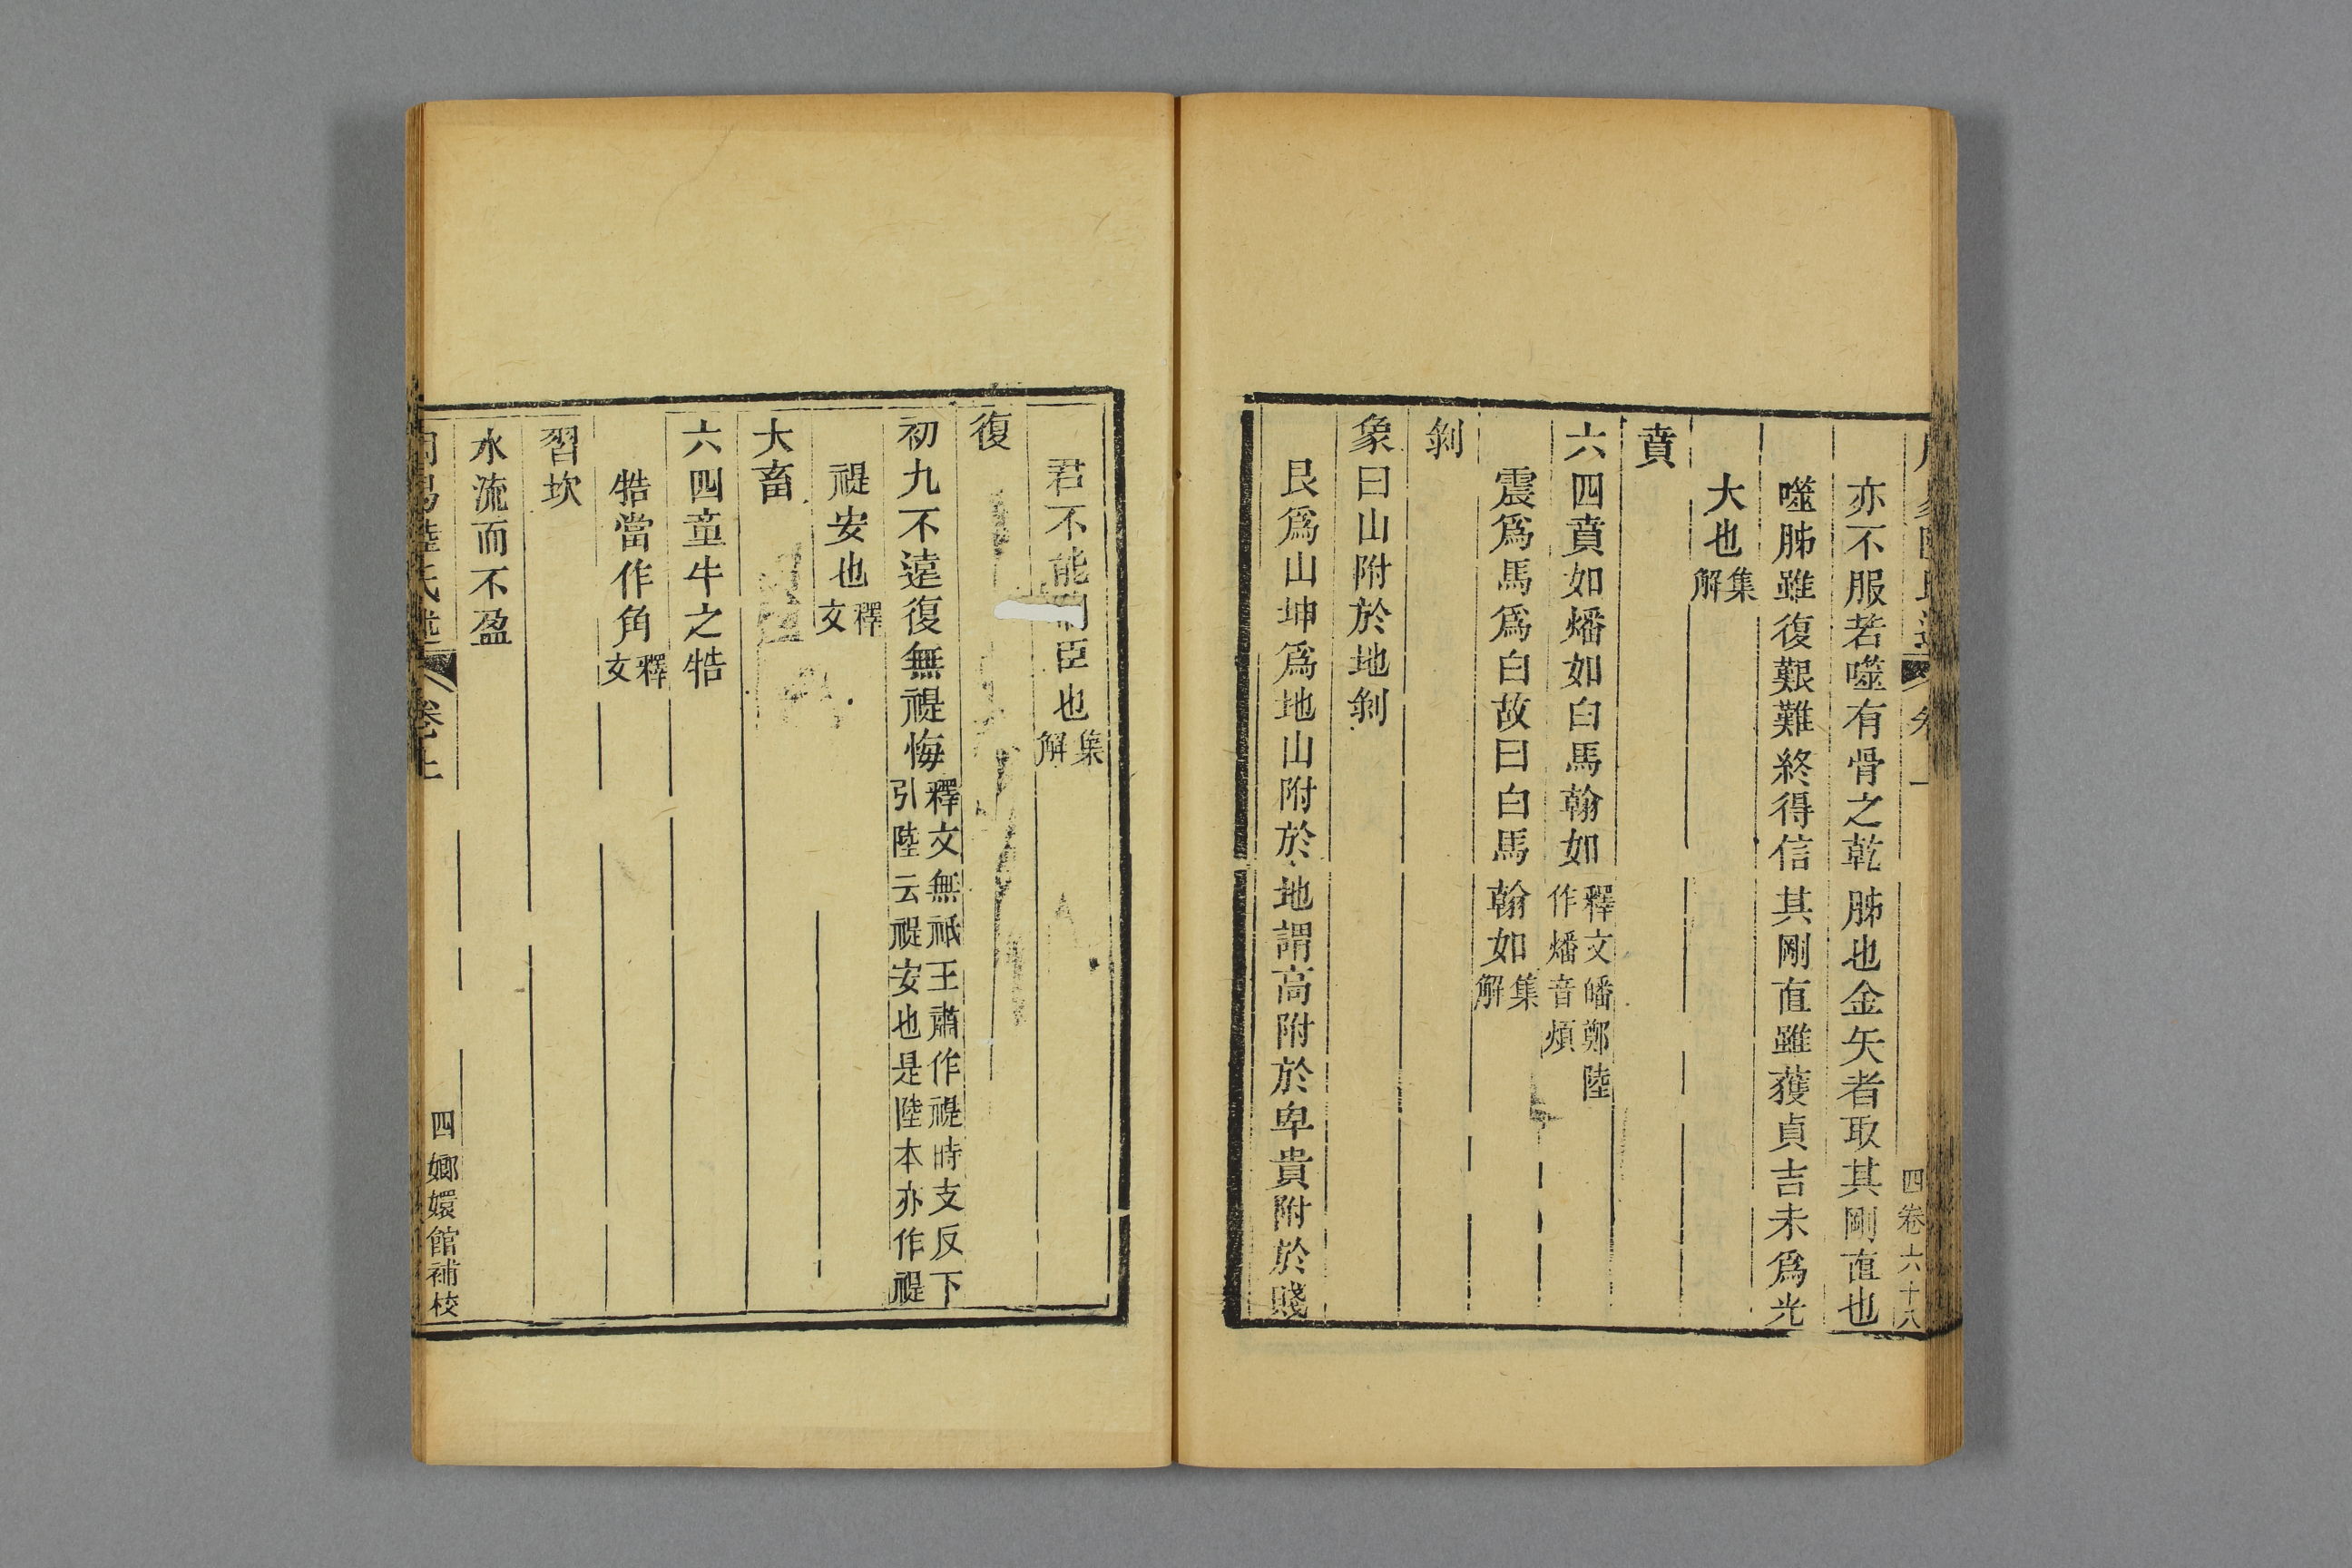 四卷六十八
亦不服若噬有骨之乾胏也金矢者取其剛直也
噬胏雖復艱難終得信其剛直雖獲貞吉未爲光
大也集解
賁
六四賁如燔如白馬翰如釋文皤鄭陸作燔音煩
震爲馬爲白故曰白馬翰如集解
剝
象曰山附於地剝
艮爲山坤爲地山附於地謂高附於卑貴附於賤
君不能臣也集解
復
初九不遠復無禔悔釋文無祇王肅作禔時支反下引陸云禔安也是陸本亦作禔
禔安也釋文
大畜
六四童牛之牿
牿當作角釋文
習坎
水流而不盈
卷上
四
嫏嬛館補校